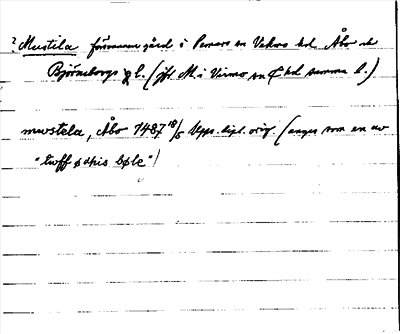 ? Mustila försvunnen gård i Pemars sn Vehmo hd Åbo och
Björneborgs l. (jfr M. i Virmo sn o hd samma l.)
mwstela, Åbo 1487 18/5 Upps. dipl. orig. (anges som en av
"twff sopis bole")